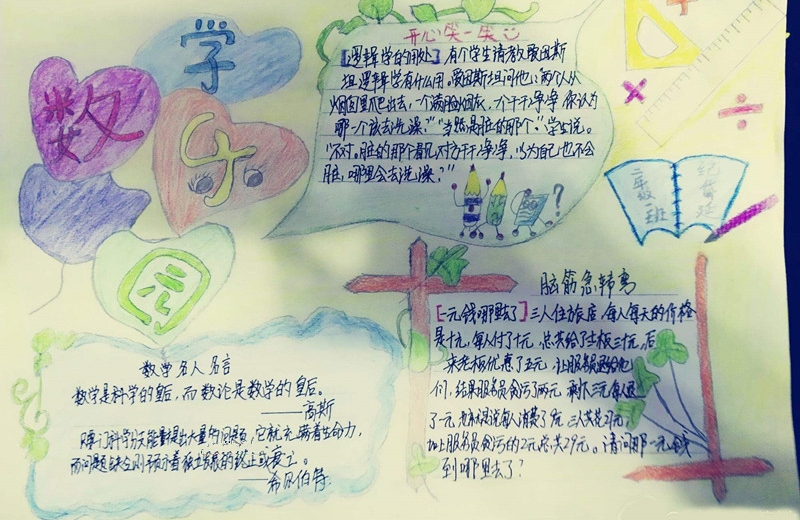 数
学
乐
园
开心笑一笑
[逻辑学的用处] 有个学生请教爱因斯
坦逻辑学有什么用。爱因斯坦问他:"两个人从
烟囱里爬出去,一个满脸烟灰,一个干干净净,你认为
哪一个该去洗澡?""当然是脏的那个。"学生说。
"不对,脏的那个看见对方干干净净,以为自己也不会
脏,哪里会去洗澡?"
?
二年级一班
脑筋急转弯
[一元钱哪里去了]三人住旅店,每人每天的价格
是十元,每人付了十元,总共给了老板三十元,后
来老板优惠了五元,让服务员退给他
们,结果服务员贪污了两元,剩下三元每人退
了一元,也就是说每人消费了9元,三人共花27元,
加上服务员贪污的2元总共29元。请问那一元钱
到哪里去了?
数学名人名言
数学是科学的皇后,而数论是数学的皇后。
——高斯
只要一门科学分支能提出大量的问题,它就充满着生命力,
而问题缺乏则预示着独立发展的终止或衰亡。
——希尔伯特